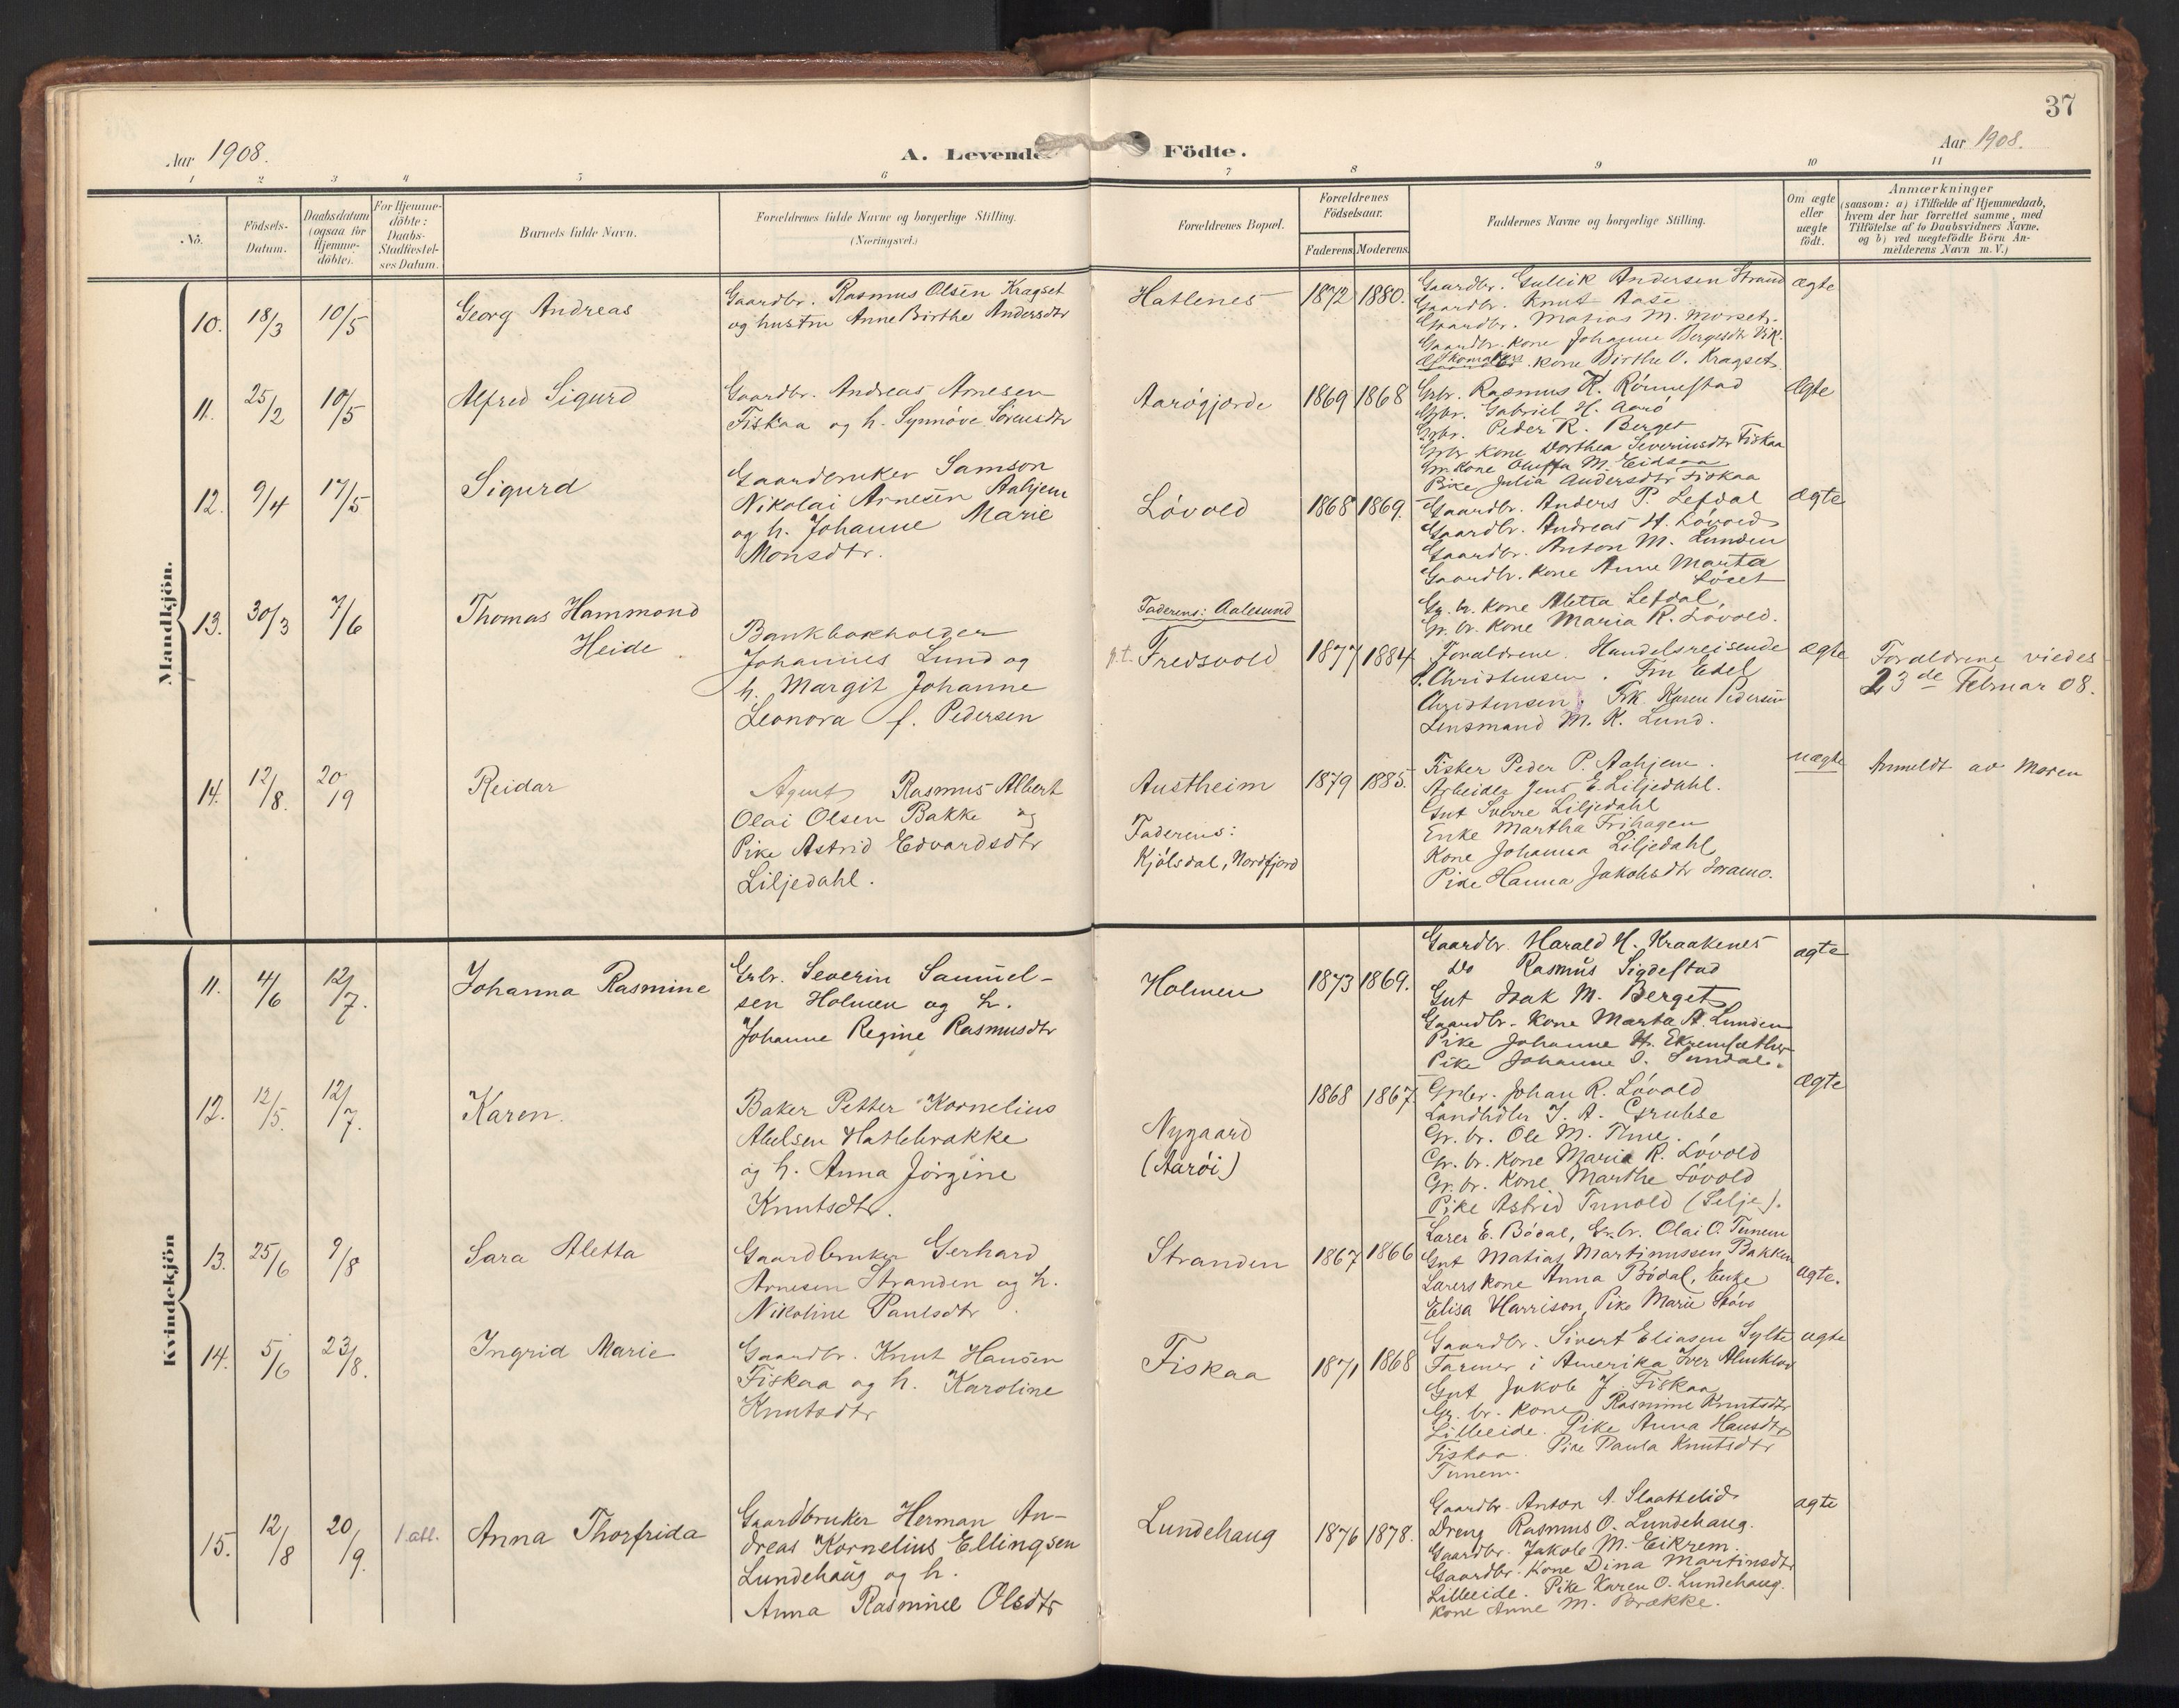 37
Aar 1908.
A. Levende Födte.
Aar 1908.
1 2 3 4 5 6 7 8 9 10 11
No.
Födsels-Datum.
Daabsdatum (ogsaa for Hjemme-döbte).
For Hjemme-döbte: Daabs-Stadfæstel-ses Datum.
Barnets fulde Navn.
Forældrenes fulde Navne og borgerlige Stilling. (Næringsvei.)
Forældrenes Bopæl.
Forældrenes Födselsaar.
Faderens Moderens
Faddernes Navne og borgerlige Stilling.
Om ægte eller uægte födt.
Anmærkninger
(saasom: a) i Tilfælde af Hjemmedaab,
hvem der har forrettet samme, med
Tilföielse af to Daabsvidners Navne.
og b) ved uægtefödte Börn An-
melderens Navn m. V.)
Mandkjön.
10. 18/3 10/5 Georg Andreas
Gaardbr. Rasmus Olsen Kragset
og hustru Anne Birthe Andersdtr
Hatlenes 1872 1880.
Gaardbr. Gullik Andersen Strand
Gaardbr. Knut Aase
Gaardbr. Matias M. Morset
Gaardbr. Kone Johanne Bergesdtr Vik.
Skomakers Kone Birthe O. Kragset
ægte
11. 25/2 10/5 Alfred Sigurd
Gaardbr. Andreas Arnesen
Fiskaa og h. Synnöve Sörensdtr
Aarögjerde 1869 1868
Grbr. Rasmus K. Rönnestad
Grbr. Gabriel H. Aarö
Grbr. Peder R. Berget
Grbr Kone Dorthea Severinsdtr Fiskaa
Gr. Kone Oluffa M. Eidsaa
Pike Julia Andersdtr Fiskaa
Ægte
12. 9/4 17/5 Sigurd
Gaardbruker Samson
Nikolai Arnesen Aahjem
og h. Johanne Marie
Monsdtr.
Lövold 1868 1869.
Gaardbr. Anders P. Lefdal
Gaardbr. Andreas H. Lövold
Gaardbr. Anton M. Lunden
Gaardbr. Kone Anne Marta
Löset
Gr. br. Kone Aletta Lefdal,
Gr. br. Kone Maria R. Lövold.
ægte
13. 30/3 7/6 Thomas Hammond
Heide
Bankbokholder
Johannes Lund og
h. Margit Johanne
Leonora f. Pedersen
Faderens: Aalesund
p.t. Fredsvold 1877 1884
Forældrene. Handelsreisende
Christensen. Fru Edel
Christensen. Frk. Karen Pedersen
Lensmand M. K. Lund.
ægte
Forældrene viedes
23de Februar 08.
14. 12/8. 20/9 Reidar
Agent Rasmus Albert
Olai Olsen Bakke og
Pike Astrid Edvardsdtr
Liljedahl.
Austheim 1879 1885.
Faderens:
Kjölsdal, Nordfjord
Fisker Peder P. Aahjem.
Arbeider Jens E. Liljedahl.
Gut Sverre Liljedahl
Enke Martha Frihagen
Kone Johanna Liljedahl
Pike Hanna Jakobsdtr
uægte
Anmeldt av Moren
Kvindekjön
11. 4/6 12/7. Johanna Rasmine
Grbr. Severin Samuel-
sen Holmen og h.
Johanne Regine Rasmusdtr
Holmen 1873 1869.
Gaardbr. Harald H. Kraakenes
Do Rasmus Sigdestad
Gut Isak M. Berget
Gaardbr. Kone Marta A. Lunden
Pike Johanne H. Ekremsæther
Pike Johanne O. Sundal.
ægte
12. 12/5. 12/7. Karen.
Baker Petter Kornelius
Abelsen Hatlebrakke
og h. Anna Jörgine
Knutsdtr.
Nygaard
(Aaröi)
1868 1867
Grbr. Johan R. Lövold
Landhdlr J. A. Grubse
Gr. br. Ole M. Thue.
Gr. br. Kone Maria R. Lövold
Gr. br. Kone Marthe Lövold
Pike Astrid Tunold (Selje).
Ægte
13. 25/6 9/8 Sara Aletta
Gaardbruker Gerhard
Arnesen Stranden og h.
Nikoline Paulsdtr.
Stranden 1867 1866
Lærer E. Bödal, Gr. br. Olai O. Tunem
Gut Matias Martinussen Bakken
Lærerskone Anna Bödal, Enke
Elisa Harrison, Pike Marie
ægte.
14. 5/6 23/8. Ingrid Marie
Gaardbr. Knut Hansen
Fiskaa og h. Karoline
Knutsdtr
Fiskaa 1871 1868
Gaardbr. Sivert Eliasen Sylte
Farmer i Amerika Iver Almklov
Gut Jakob J. Fiskaa
Gr. br. Kone Rasmine Knutsdtr
Lilleeide. Pike Anna Hansdtr
Fiskaa. Pike Paula Knutsdtr
Tunem.
ægte
15. 12/8 20/9. Anna Thorfrida
Gaardbruker Herman An-
dreas Kornelius Ellingsen
Lundehaug og h.
Anna Rasmine Olsdtr
Lundehaug 1876 1878.
Gaardbr. Anton A. Slaattelid
Dreng Rasmus O. Lundehaug.
Gaardbr. Jakob M. Eikrem.
Gaardbr. Kone Dina Martinsdtr
Lilleeide. Pike Karen O. Lundehaug.
Kone Anne M. Brække.
ægte